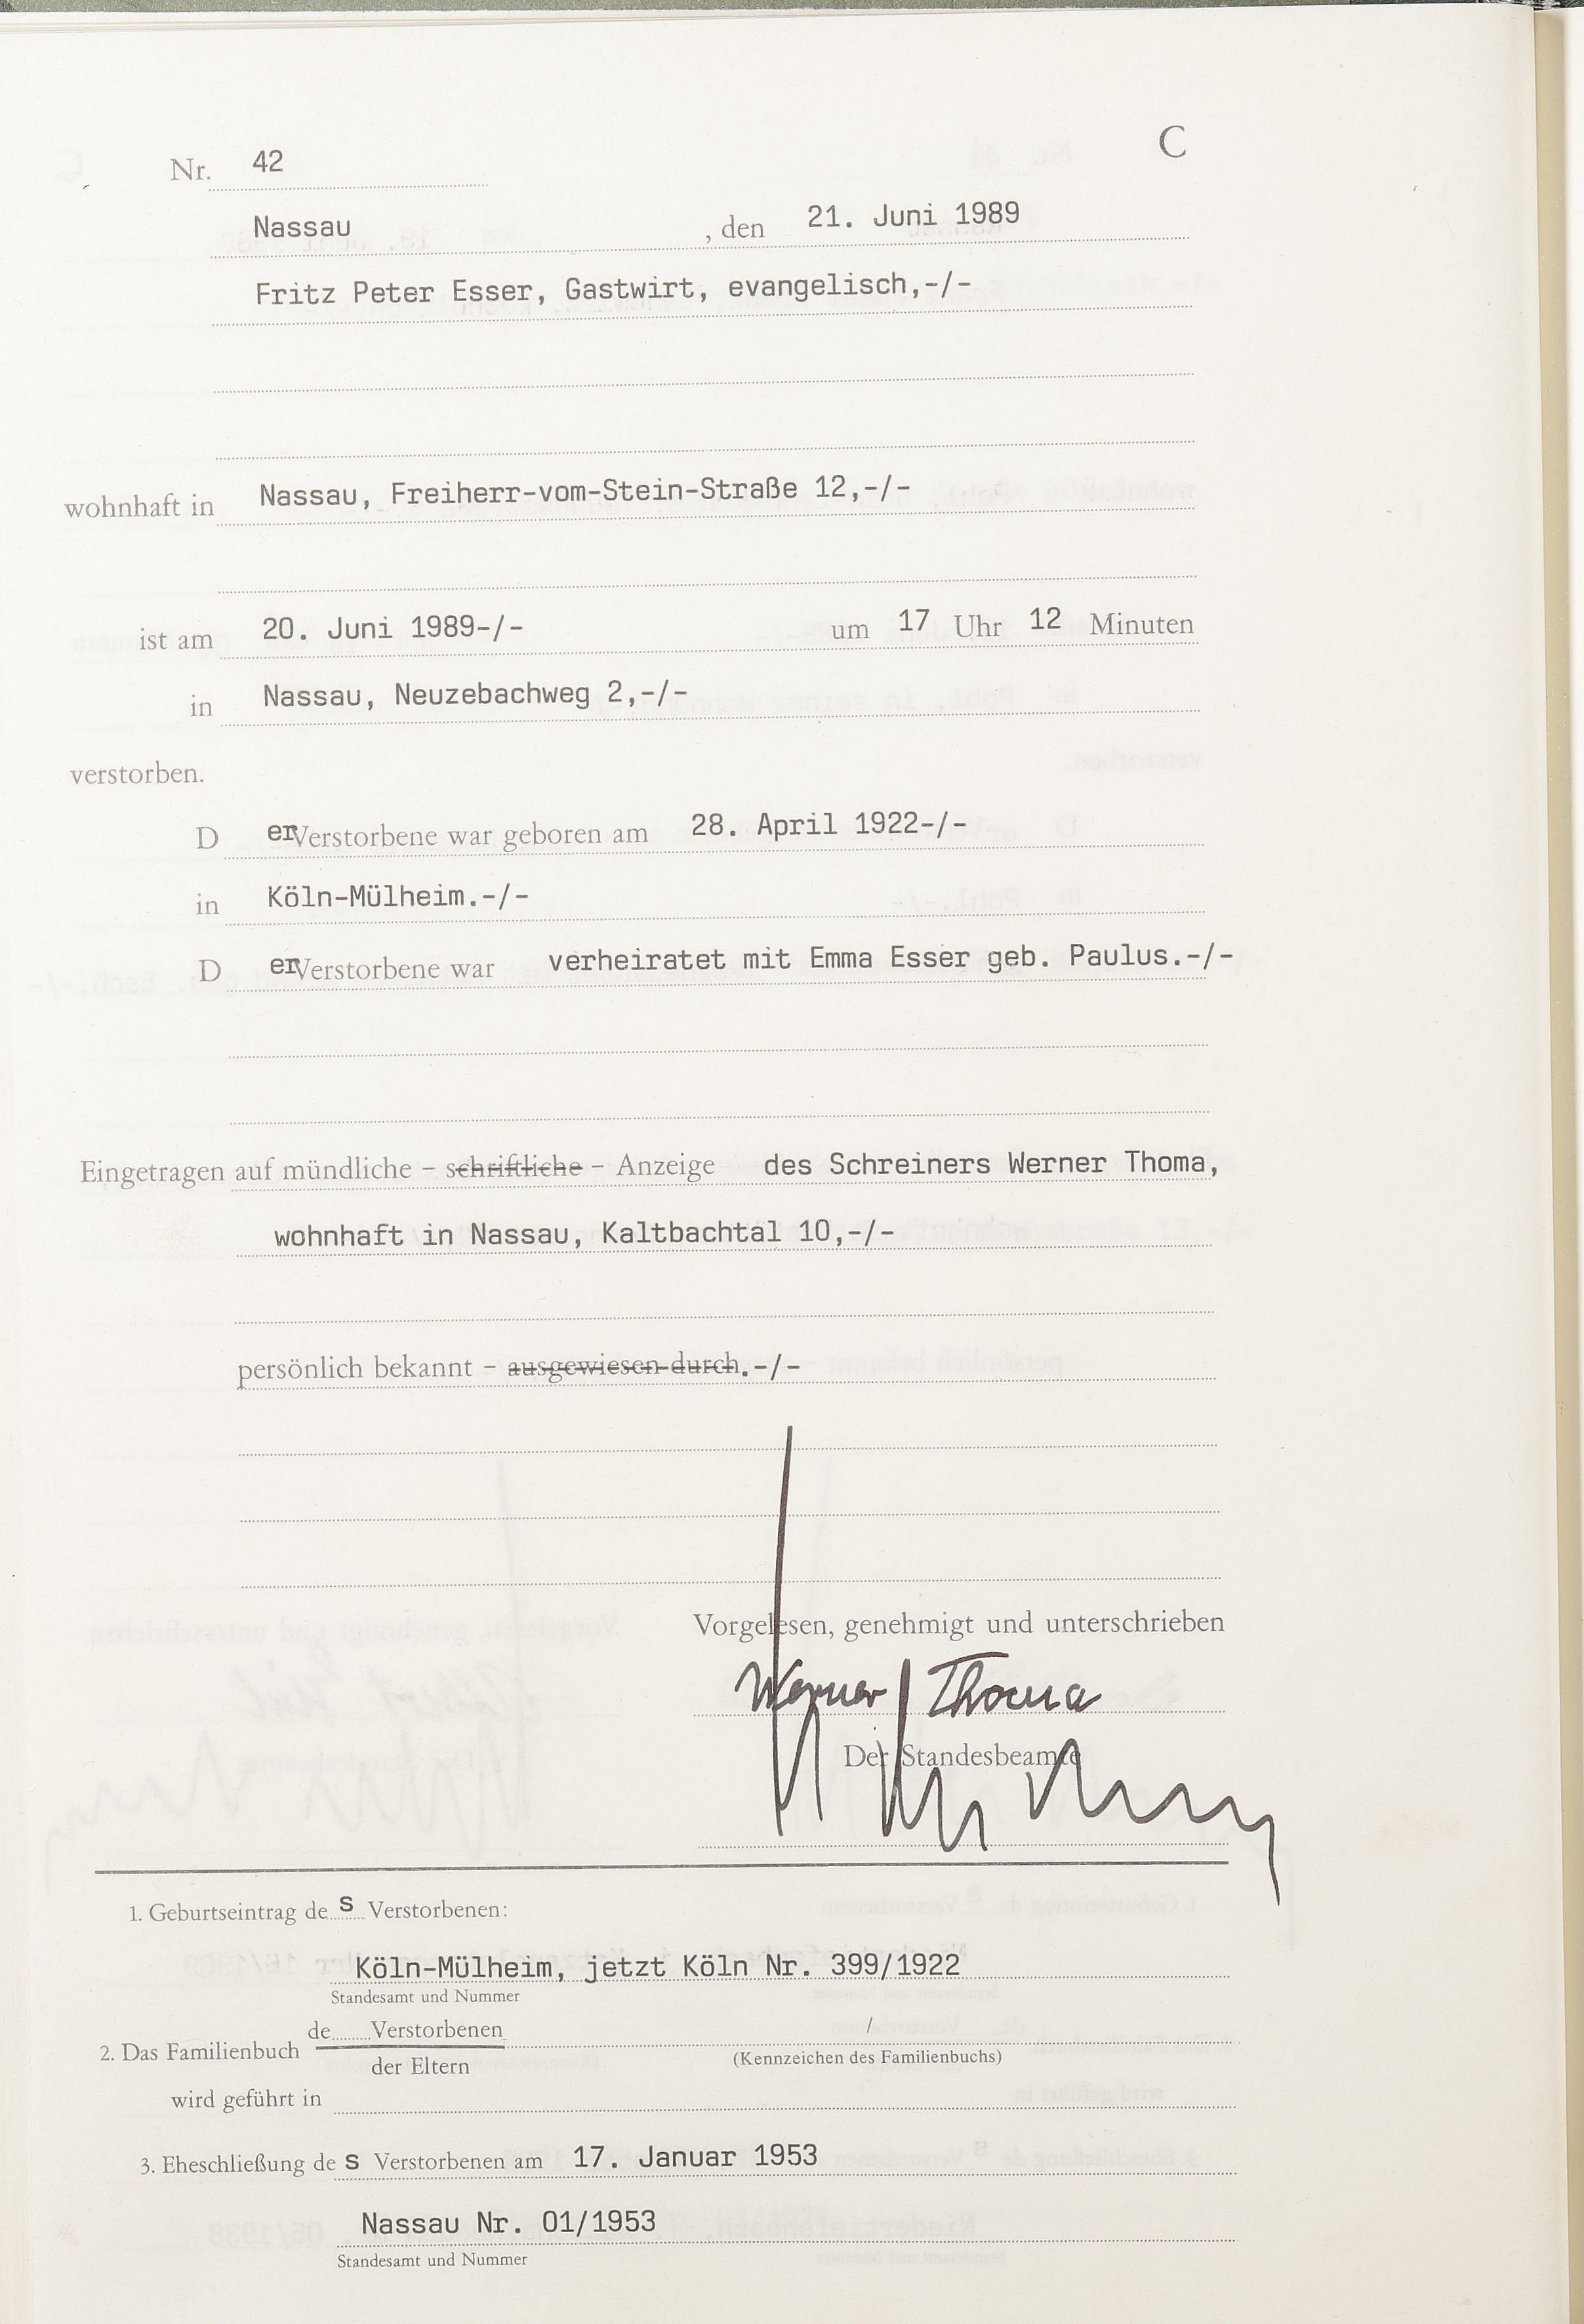 C
Nr. 42
Nassau , den 21. Juni 1989
Fritz Peter Esser, Gastwirt, evangelisch,-/-
wohnhaft in Nassau, Freiherr-vom-Stein-Straße 12,-/-
ist am 20. Juni 1989-/- um 17 Uhr 12 Minuten
in Nassau, Neuzebachweg 2,-/-
verstorben.
D er Verstorbene war geboren am 28. April 1922-/-
in Köln-Mülheim.-/-
D er Verstorbene war verheiratet mit Emma Esser geb. Paulus.-/-
Eingetragen auf mündliche – schriftliche – Anzeige des Schreiners Werner Thoma,
wohnhaft in Nassau, Kaltbachtal 10,-/-
persönlich bekannt – ausgewiesen durch.-/-
Vorgelesen, genehmigt und unterschrieben
Werner Thoma
Der Standesbeamte
1. Geburtseintrag de s Verstorbenen:
Köln-Mülheim, jetzt Köln Nr. 399/1922
Standesamt und Nummer
de Verstorbenen /
2. Das Familienbuch
der Eltern (Kennzeichen des Familienbuchs)
wird geführt in
3. Eheschließung de s Verstorbenen am 17. Januar 1953
Nassau Nr. 01/1953
Standesamt und Nummer